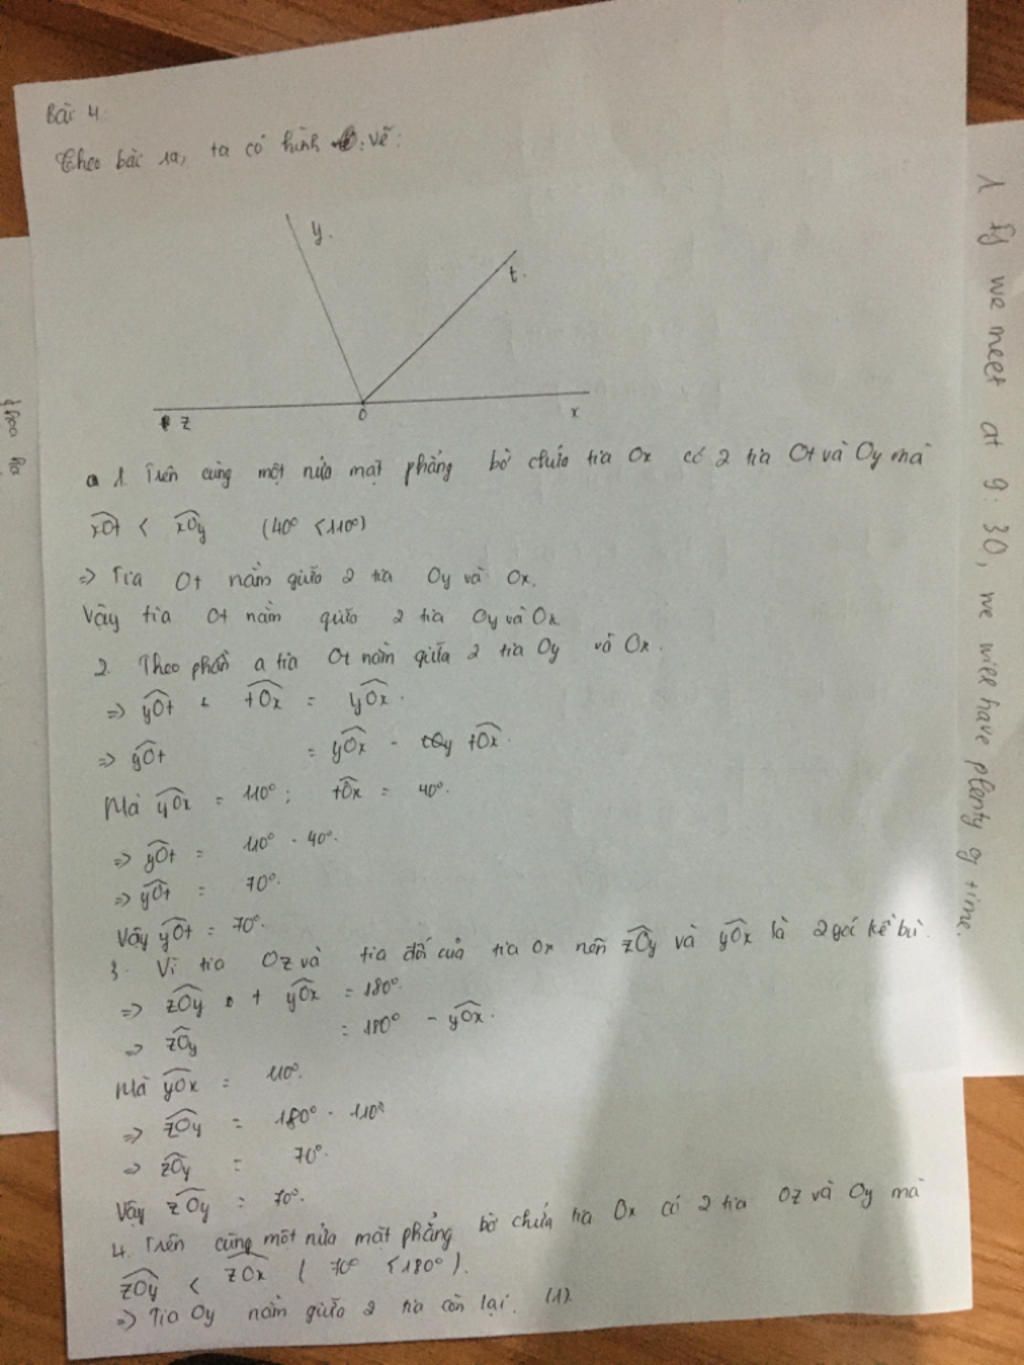 Bài 4:
Theo bài ra, ta có hình vẽ:
y.
t.
z
O
x
a 1. Trên cùng một nửa mặt phẳng bờ chứa tia Ox có 2 tia Ot và Oy mà
xOt < xOy (40° < 110°)
=> Tia Ot nằm giữa 2 tia Oy và Ox.
Vậy tia Ot nằm giữa 2 tia Oy và Ox
2. Theo phần a tia Ot nằm giữa 2 tia Oy và Ox.
=> yOt + tOx = yOx.
=> yOt = yOx - tOx.
Mà yOx = 110°; tOx = 40°.
=> yOt = 110° - 40°.
=> yOt = 70°.
Vậy yOt = 70°.
3. Vì tia Oz và tia đối của tia Ox nên zOy và yOx là 2 góc kề bù.
=> zOy + yOx = 180°.
=> zOy = 180° - yOx.
Mà yOx = 110°.
=> zOy = 180° - 110°
=> zOy = 70°.
Vậy zOy = 70°.
4. Trên cùng một nửa mặt phẳng bờ chứa tia Ox có 2 tia Oz và Oy mà
zOy < zOx ( 70° < 180°).
=> Tia Oy nằm giữa 2 tia còn lại. (1).
1 If we meet at 9:30, we will have plenty of time.